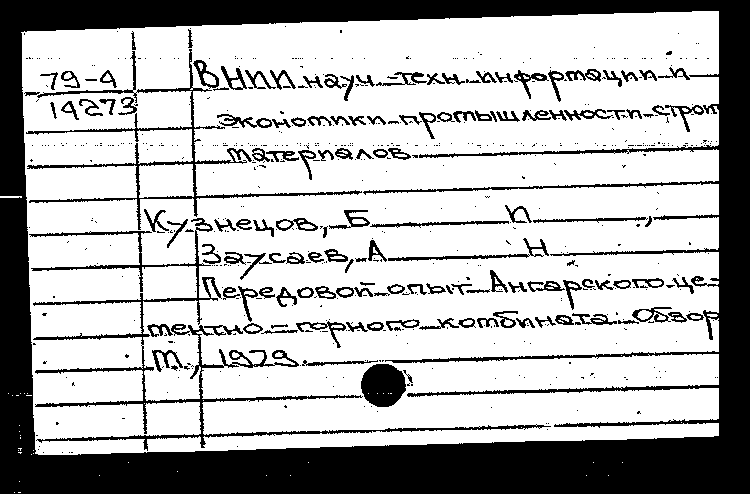 79-4
14273
ВНИИ науч.-техн. информации и
экономики промышленности строит
материалов
Кузнецов, Б П ,
Заусаев, А Н
Передовой опыт Ангарского це-
ментно-горного комбината. Обзор
М., 1979.